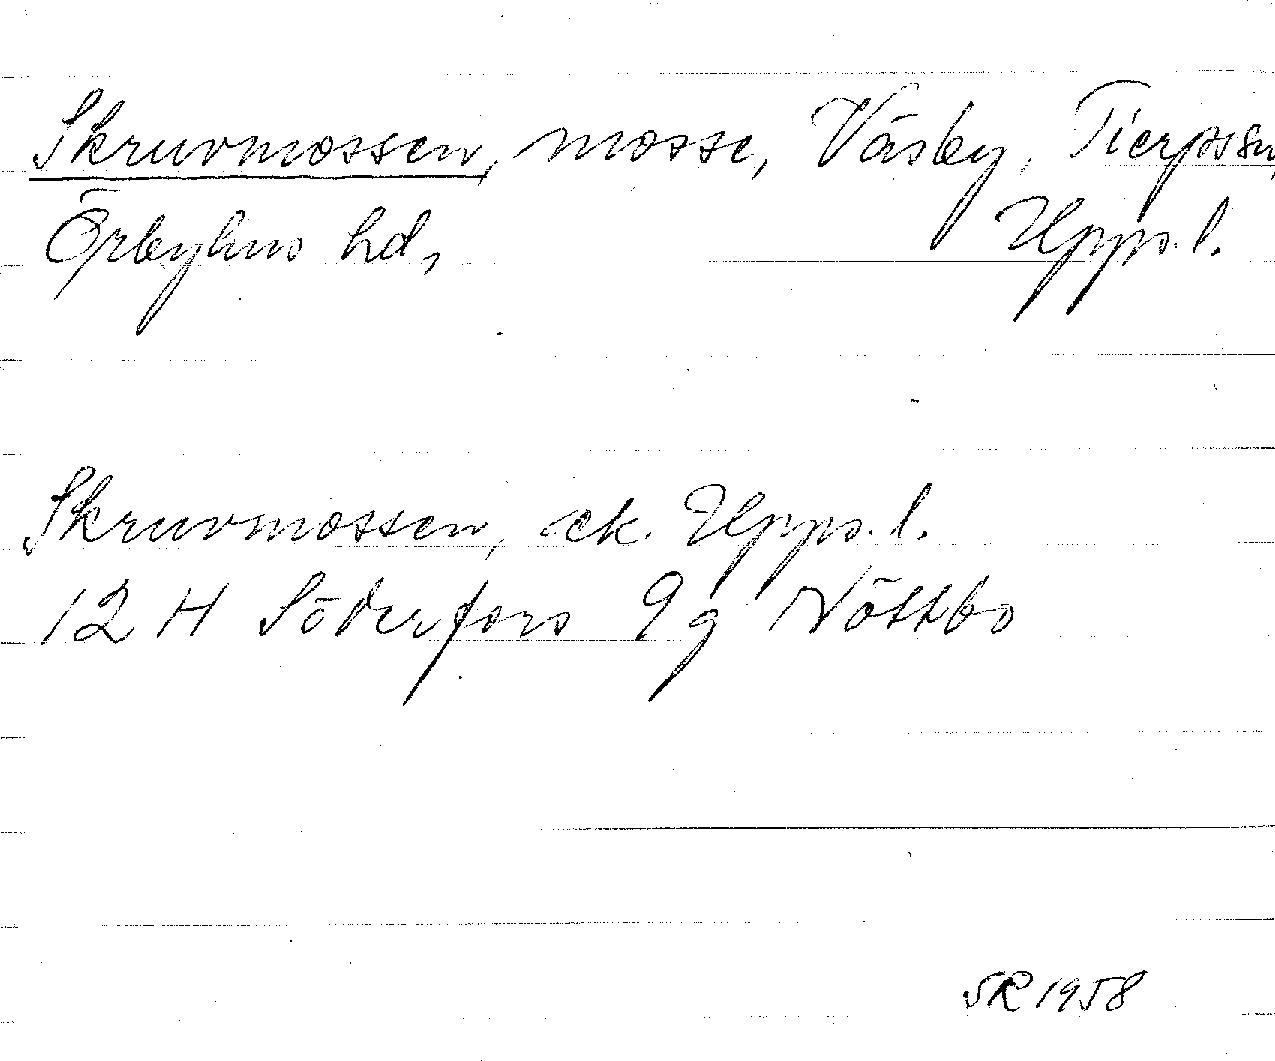 Skruvmossen, mosse, Väsby, Tierps sn,
Örbyhus hd, Upps. l.
Skruvmossen, ek. Upps. l.
12 H Söderfors 9 g Nöttbo
SR 1958